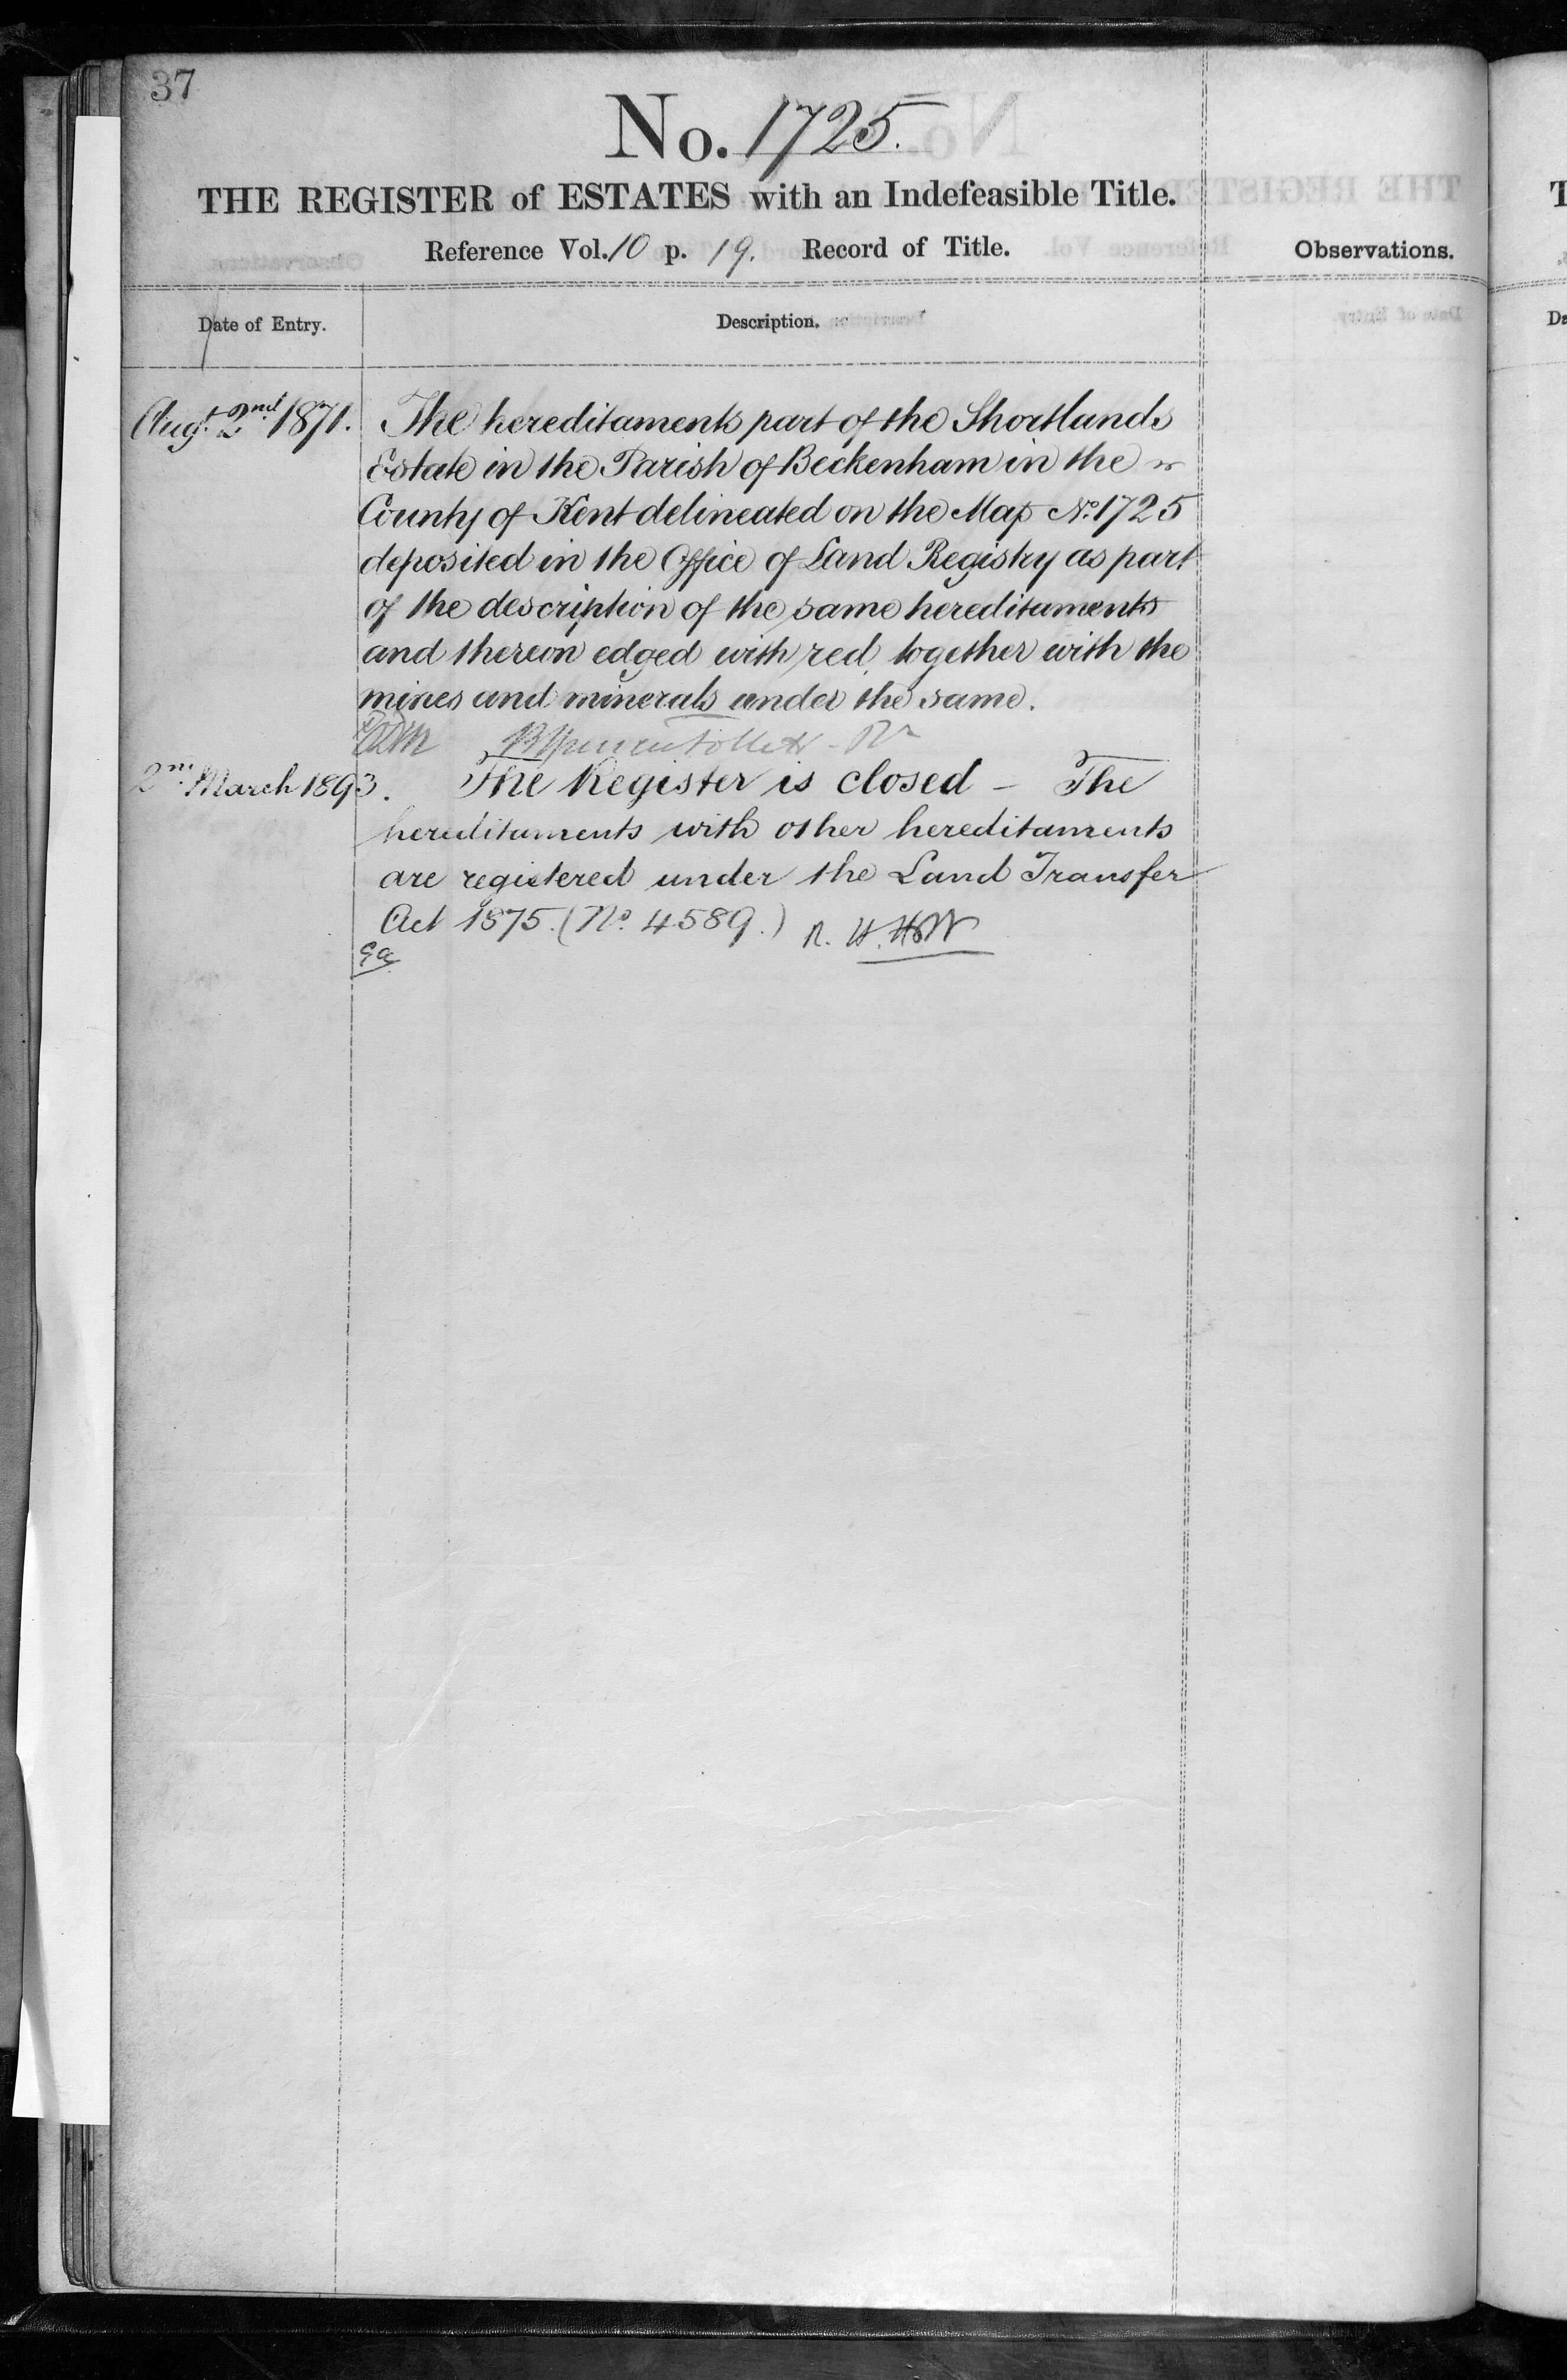 37
No. 1725.
THE REGISTER of ESTATES with an Indefeasible Title.
Reference Vol. 10 p. 19. Record of Title.
Observations.
Date of Entry.
Description.
Augt. 2nd 1871.
The hereditaments part of the Shortlands
Estate in the Parish of Beckenham in the
County of Kent delineated on the Map No. 1725
deposited in the Office of Land Registry as part
of the description of the same hereditaments
and thereon edged with red together with the
mines and minerals under the same.
2nd March 1893.
The Register is closed - The
hereditaments with other hereditaments
are registered under the Land Transfer
Act 1875. (No. 4589.) R. H. H